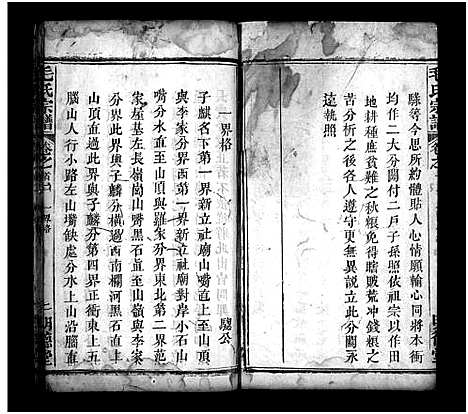 毛氏宗譜
縣等今思所約體貼人心情願輪心同將本衝
均作二大分開付二戶子孫照依祖宗以作田
地耕種庶貧難之秋粮免得賭賊荒冲錢粮之
苦分析之後各人遵守更無異説立此分關永
遠執照
一界格
騘公
子麒名下第一界新立社廟山嘴直至山頂
與李家分界西第一界新立社廟對岸小石山
嘴分水直至山頂與羅家分界東北第二界范
家屋基左長嶺崗山嘴黑石直至山嶺與李家
分界此界與子麟分横過西南欄河黑石直上
山頂為界此界與子麟分第四界正衝東上五
腦山人行小路左山塝缺處分水上山沿腦直
毛氏宗譜
卷之首
界格
明德堂